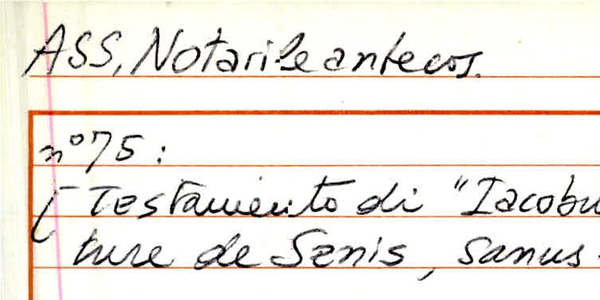 ASS, Notarile antecos.
n° 75 :
[ Testamento di "Iacobu
ture de Senis, sanus